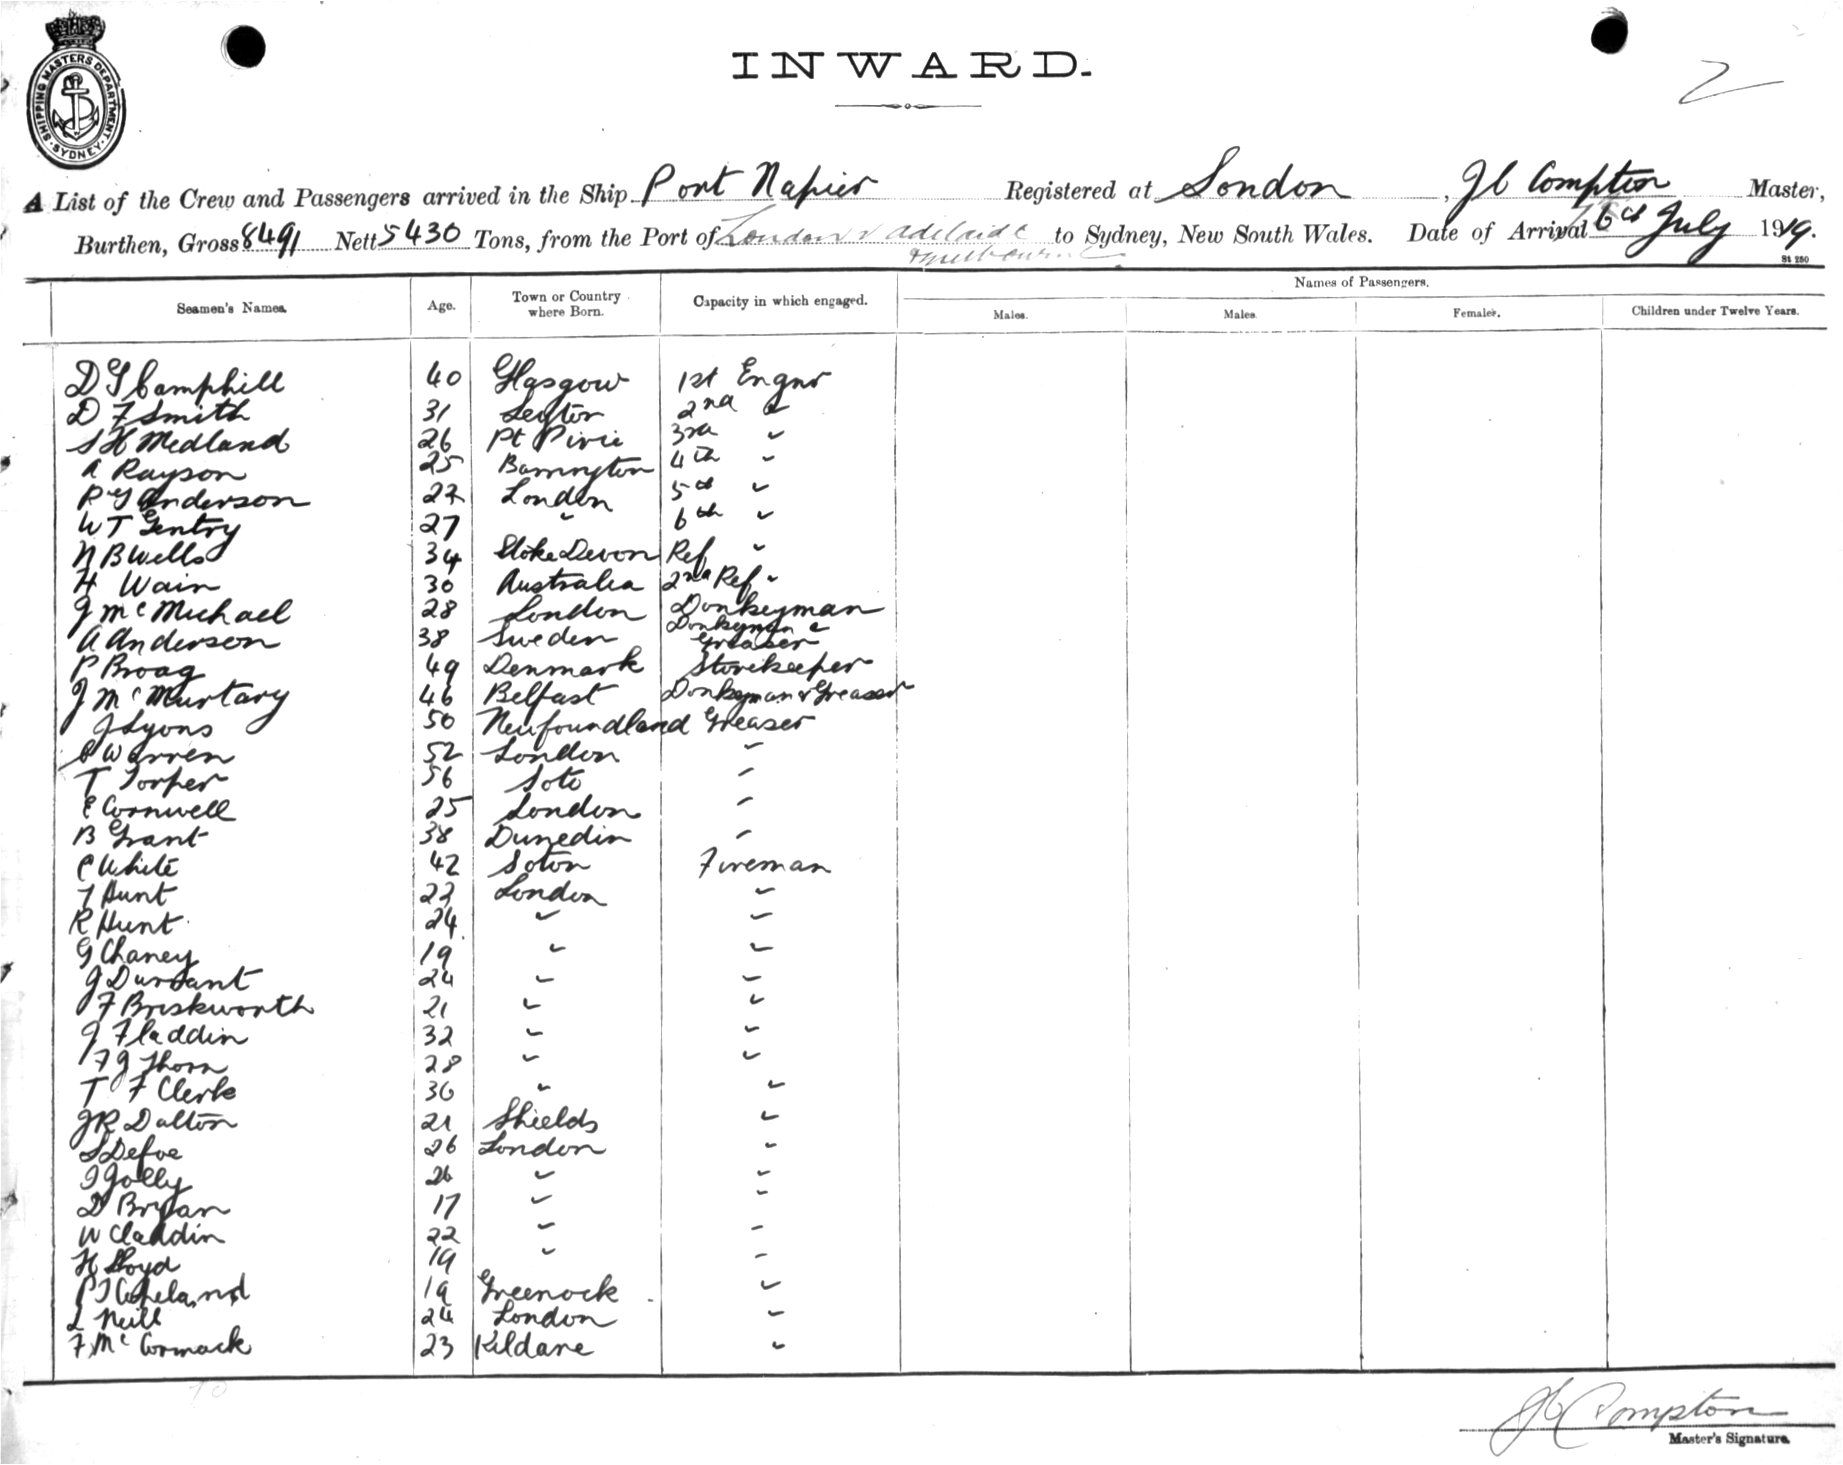 SHIPPING MASTERS DEPARTMENT
SYDNEY
INWARD.
2
A List of the Crew and Passengers arrived in the Ship Port Napier Registered at London, J C Compton Master,
Burthen, Gross 8491 Nett 5430 Tons, from the Port of London & Adelaide to Sydney, New South Wales. Date of Arrival 6th July 1919.
& Melbourne
St 280
Seamen's Names. Age. Town or Country where Born. Capacity in which engaged. Names of Passengers.
Males. Males. Females. Children under Twelve Years.
D G Camphill 40 Glasgow 1st Engnr
D F Smith 31 Leyton 2nd "
S H Medland 26 Pt Pirie 3rd "
A Rayson 25 Barrington 4th "
R G Anderson 22 London 5th "
W T Gentry 27 " 6th "
N B Wells 34 Stoke Devon Ref "
H Wain 30 Australia 2nd Ref "
J McMichael 28 London Donkeyman
A Anderson 38 Sweden Donkeyman & Greaser
P Broag 49 Denmark Storekeeper
J McMurtary 46 Belfast Donkeyman & Greaser
J Lyons 50 Newfoundland Greaser
C Warren 52 London "
T Torper 56 Soto "
E Cornwell 25 London "
B Grant 38 Dunedin "
C White 42 Soton Fireman
T Hunt 22 London "
R Hunt 24 " "
G Chaney 19 " "
J Durrant 24 " "
F Briskworth 21 " "
J Fladdin 32 " "
F J Thorn 28 " "
T F Clerk 30 " "
J R Dalton 21 Shields "
S Defoe 26 London "
J Jolly 26 " "
D Bryan 17 " "
W Claddin 22 " "
H Lloyd 19 " "
P J Copeland 19 Greenock "
L Neill 24 London "
F McCormack 23 Kildare "
70
J C Compton
Master's Signature.